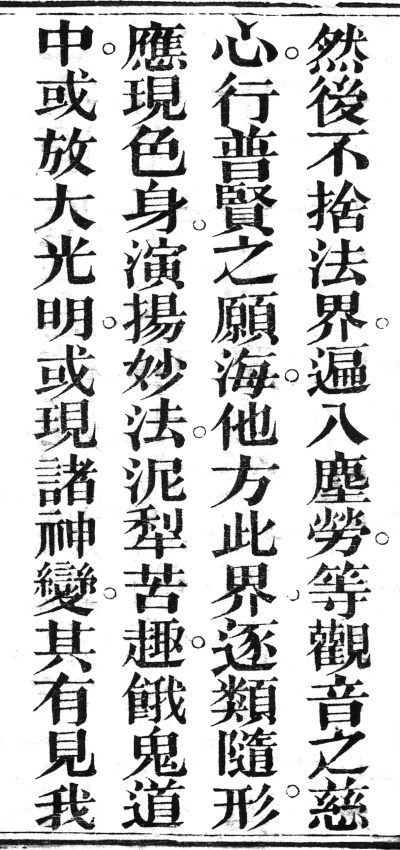 然後不捨法界。遍入塵勞。等觀音之慈
心。行普賢之願海。他方此界。逐類隨形。
應現色身。演揚妙法。泥犁苦趣。餓鬼道
中。或放大光明。或現諸神變。其有見我